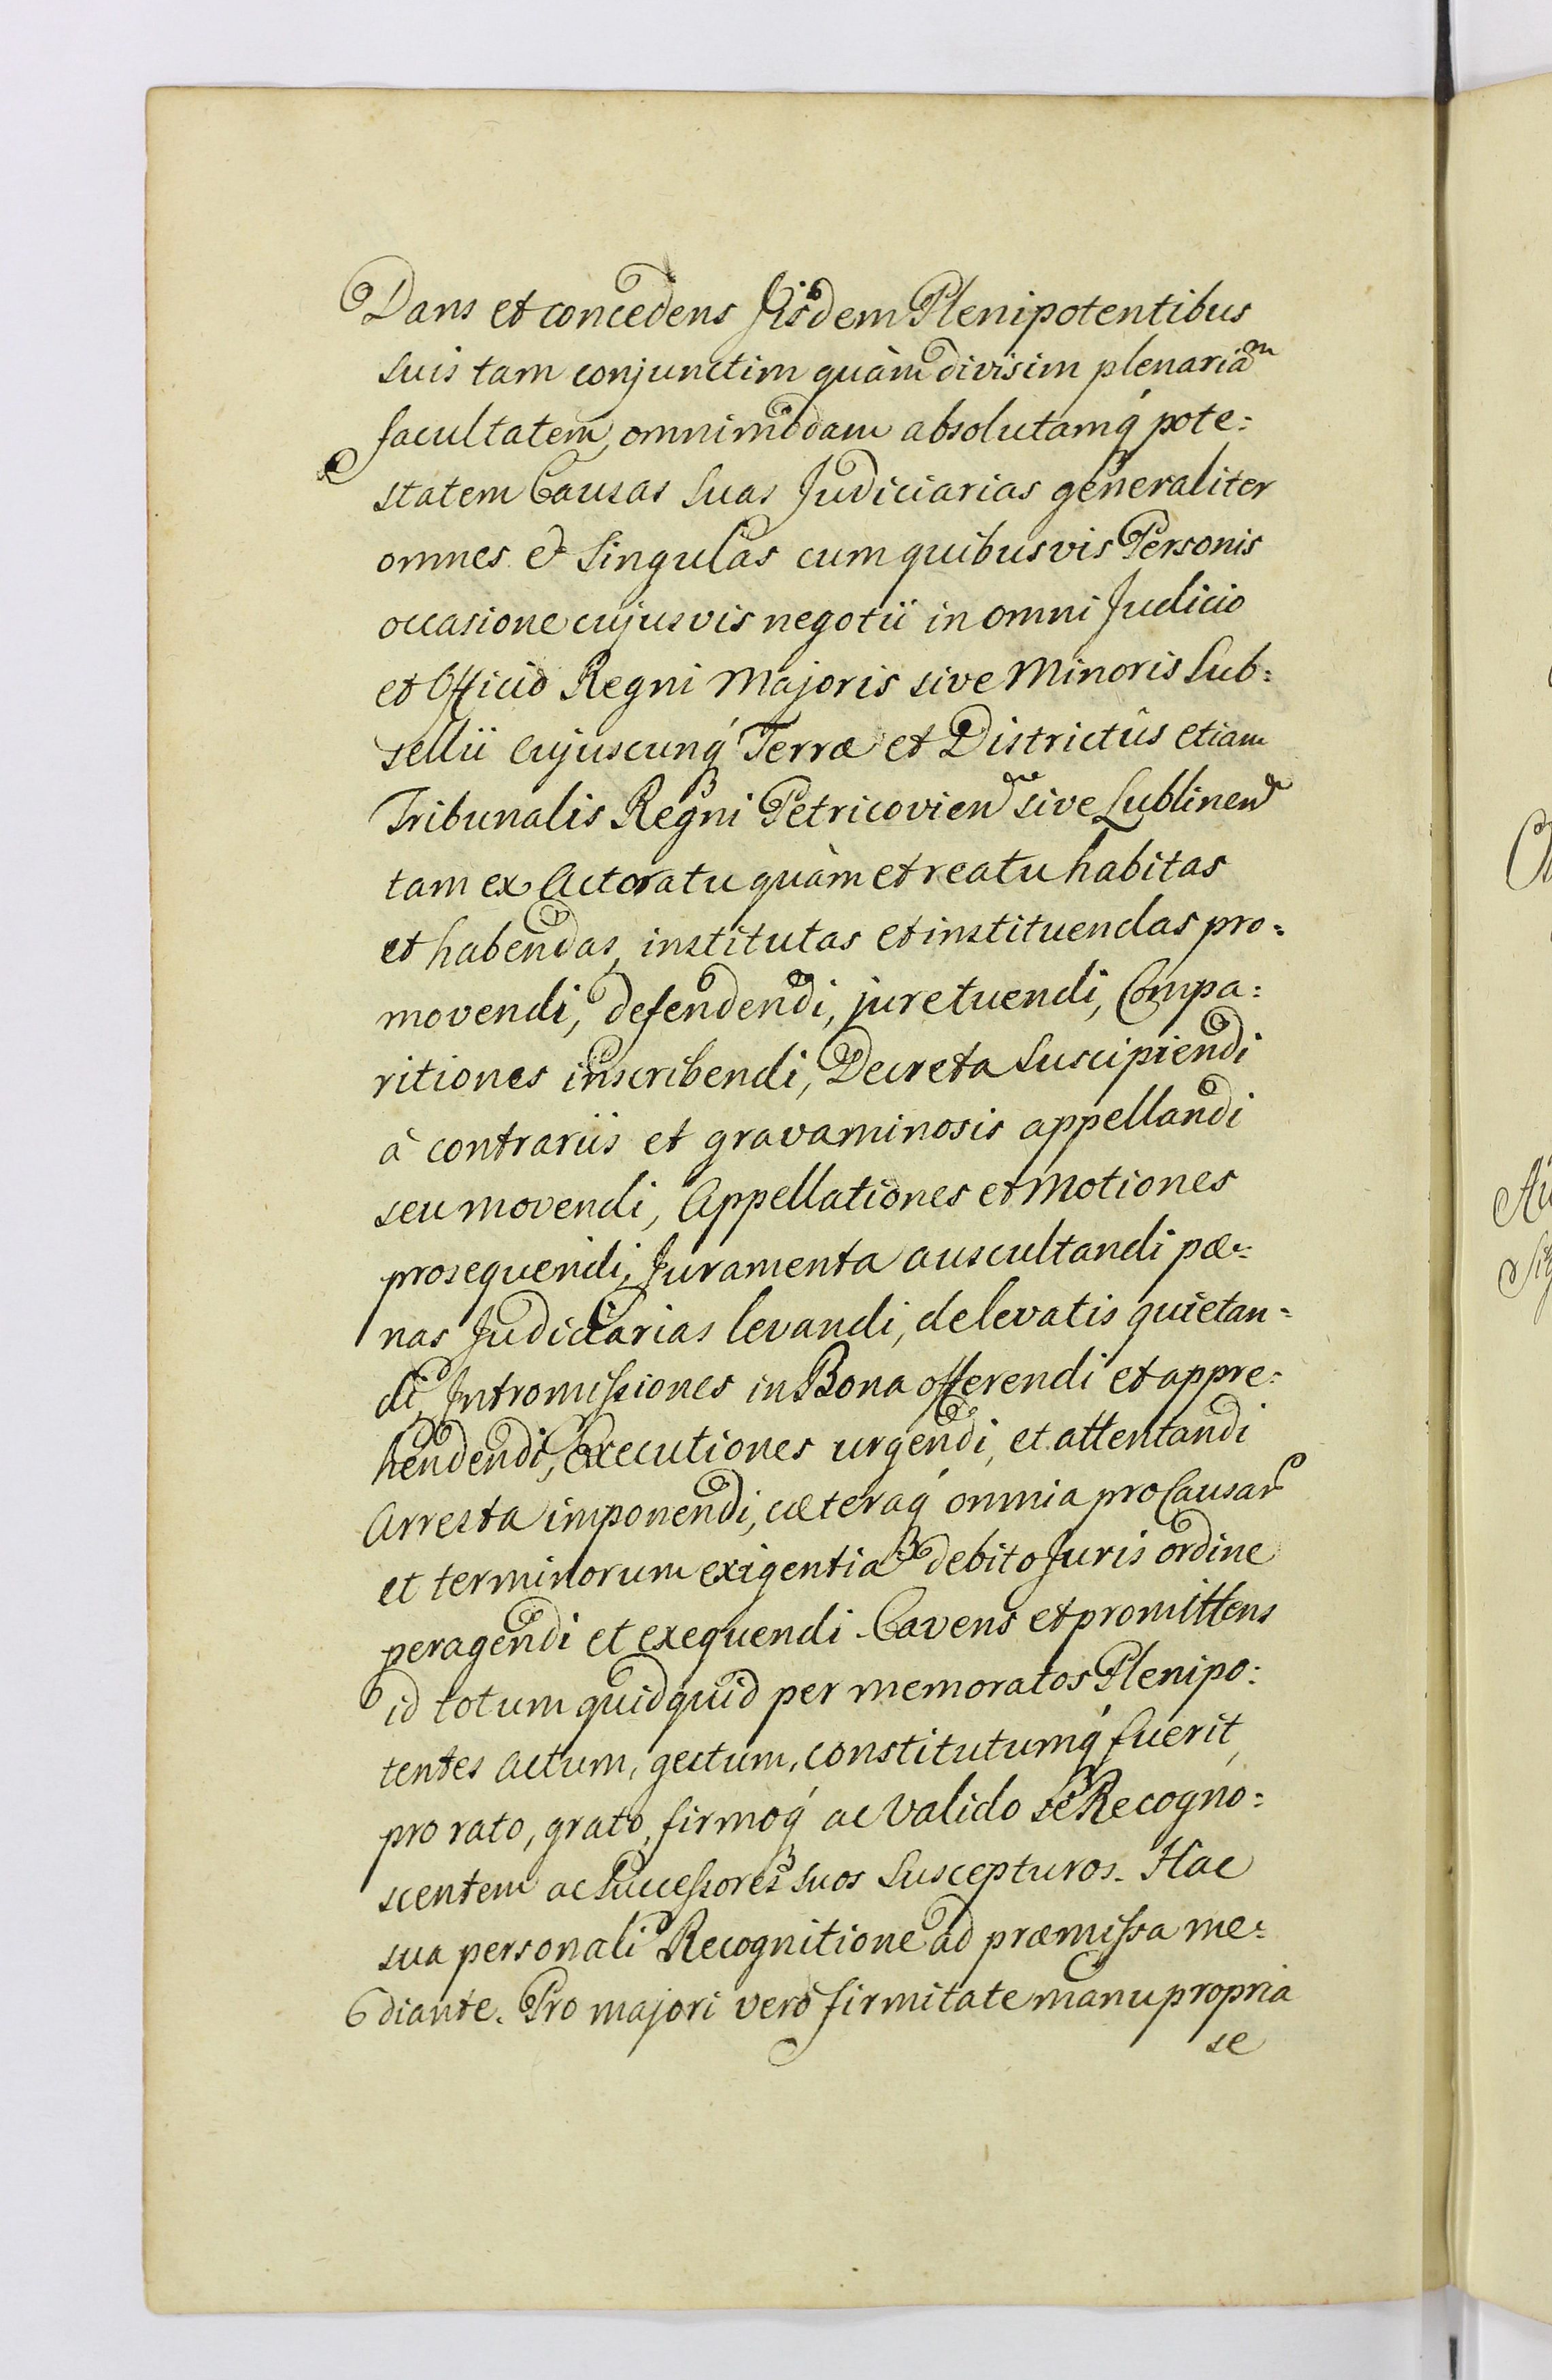 Dans et concedens Jisdem Plenipotentibus
suis tam conjunctim quàm divisim plenariam
facultatem, omnimodam absolutamq́ pote:
statem Causas suas Judiciarias generaliter
omnes et singulas cum quibusvis Personis
occasione cujusvis negotii in omni Judicio
et Officio Regni Majoris sive Minoris Sub:
sellii cujuscunq́ Terræ et Districtûs etiam
Tribunalis Regni Petricovien sive Lublinen
tam ex Actoratu quàm et reatu habitas
et habendas, institutas et instituendas pro:
movendi, defendendi, jure tuendi, Compa:
ritiones inscribendi, Decreta suscipiendi
à contrariis et gravaminosis appellandi
seu movendi, Appellationes et Motiones
prosequendi, Juramenta auscultandi pæ:
nas Judiciarias levandi, de levatis quietan:
di, Intromissiones in Bona offerendi et appre:
hendendi, Executiones urgendi, et attentandi
Arresta imponendi, cæteraq́ omnia pro Causar
et terminorum exigentia debito Juris ordine
peragendi et exequendi. Cavens et promittens
id totum quidquid per memoratos Plenipo:
tentes actum, gectum, constitutumq́ fuerit,
pro rato, grato, firmoq́ ac valido se Recogno:
scentem ac successores suos suscepturos. Hac
sua personali Recognitione ad præmissa me:
diante. Pro majori verò firmitate manu propria
se